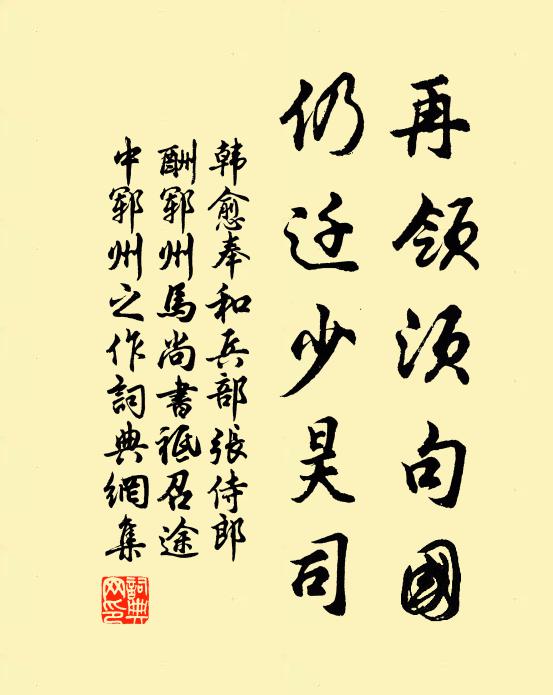 再领须句國
仍迁少昊司
韩愈奉和兵部張侍郎
酬郓州馬尚書祗召途
中郓州之作詞典網集
詞典网印